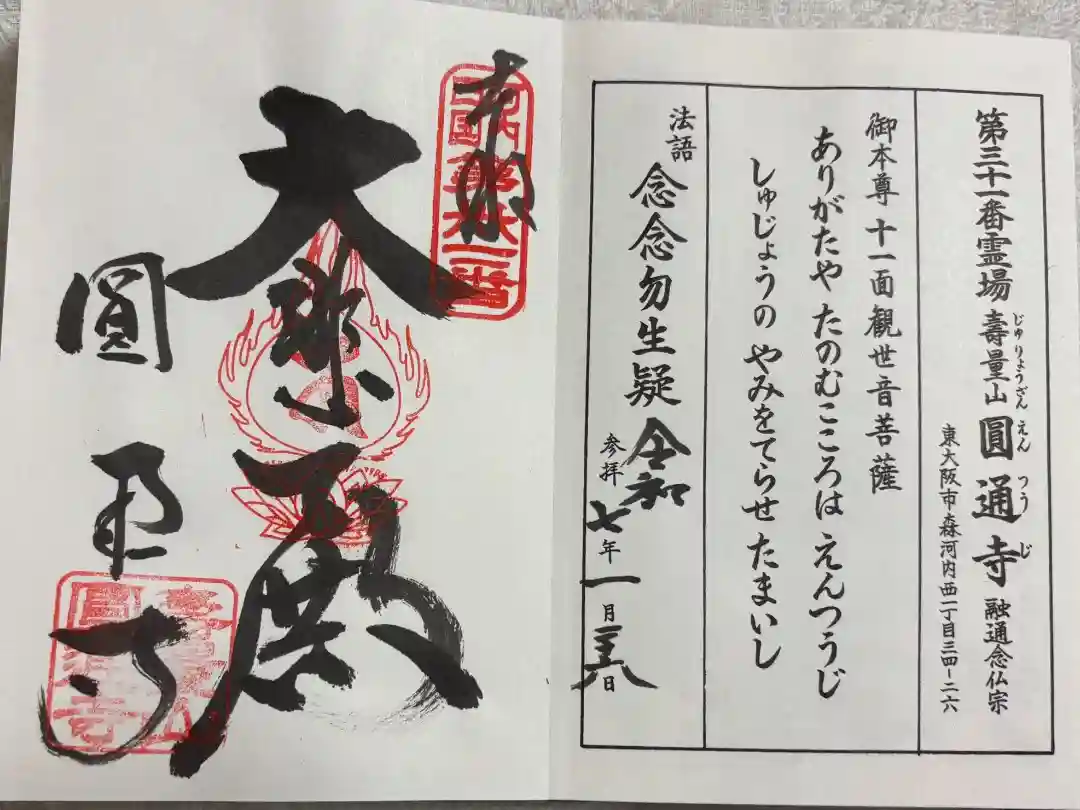 第三十一番霊場 壽量山 圓通寺 融通念仏宗
じゅりょうざん えん つう じ
東大阪市森河内西一丁目三四-二六
御本尊 十一面観世音菩薩
ありがたや たのむこころは えんつうじ
しゅじょうの やみをてらせ たまいし
法語 念念勿生疑
参拝 令和七年一月二十八日
奉拝
大悲殿
圓通寺